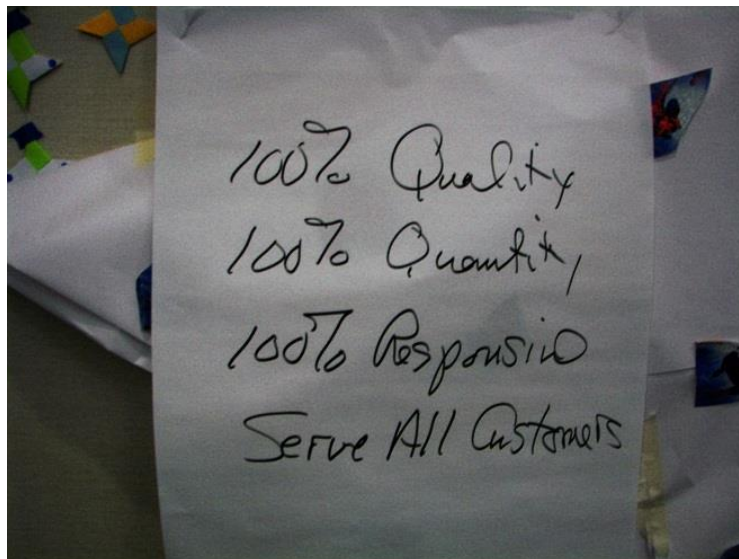 100% Quality
100% Quantity
100% Responsive
Serve All Customers